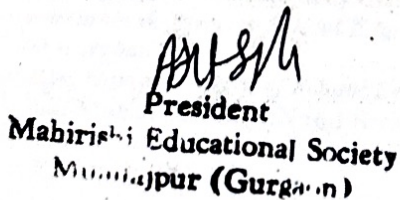 President
Mahirishi Educational Society
(Gurgaon)